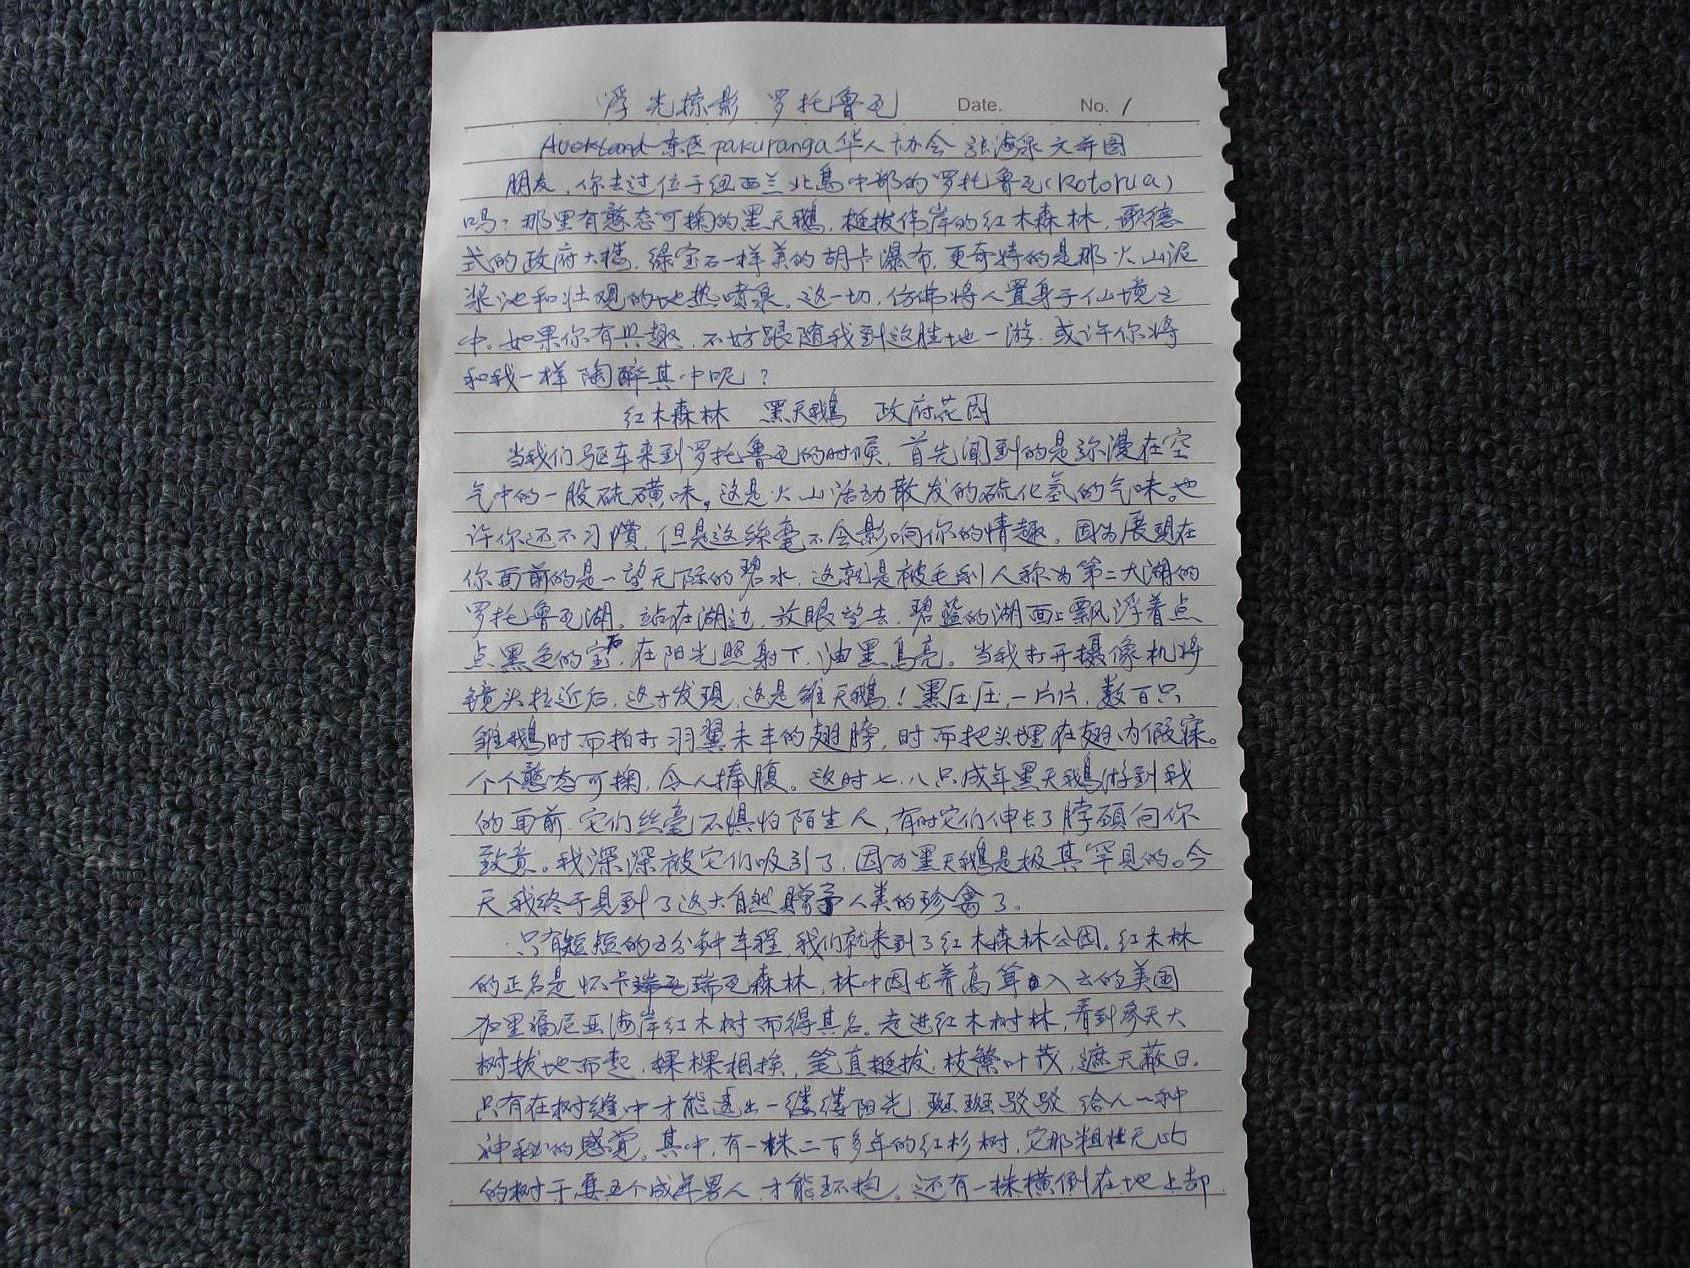 浮光掠影 罗托鲁瓦 Date. No. 1
Auckland 东区 pakuranga 华人协会 张海泉 文并图
朋友,你去过位于纽西兰北岛中部的罗托鲁瓦(Rotorua)
吗?那里有憨态可掬的黑天鹅,挺拔伟岸的红木森林,哥德
式的政府大楼,绿宝石一样美的胡卡瀑布,更奇特的是那火山泥
浆池和壮观的地热喷泉。这一切,仿佛将人置身于仙境之
中。如果你有兴趣,不妨跟随我到这胜地一游,或许你将
和我一样陶醉其中呢?
红木森林 黑天鹅 政府花园
当我们驱车来到罗托鲁瓦的时候,首先闻到的是弥漫在空
气中的一股硫磺味。这是火山活动散发的硫化氢的气味。也
许你还不习惯,但是这丝毫不会影响你的情趣。因为展现在
你面前的是一望无际的碧水,这就是被毛利人称为第二大湖的
罗托鲁瓦湖。站在湖边,放眼望去,碧蓝的湖面上飘浮着点
点黑色的宝石,在阳光照射下,油黑鸟亮。当我打开摄像机将
镜头拉近后,这才发现,这是雏天鹅!黑压压,一片片,数百只
雏鹅时而拍打羽翼未丰的翅膀,时而把头埋在翅内假寐。
个个憨态可掬,令人捧腹。这时七、八只成年黑天鹅游到我
的面前,它们丝毫不惧怕陌生人,有时它们伸长了脖颈向你
致意。我深深被它们吸引了,因为黑天鹅是极其罕见的。今
天我终于见到了这大自然赠予人类的珍禽了。
只有短短的五分钟车程,我们就来到了红木森林公园。红木林
的正名是怀卡瑞瓦瑞瓦森林,林中因长着高耸入云的美国
加里福尼亚海岸红木树而得其名。走进红木树林,看到参天大
树拔地而起,棵棵相挨,笔直挺拔,枝繁叶茂,遮天蔽日。
只有在树缝中才能透出一缕缕阳光,斑斑驳驳,给人一种
神秘的感觉。其中,有一株二百多年的红杉树,它那粗壮无比
的树干要五个成年男人才能环抱。还有一株横倒在地上却